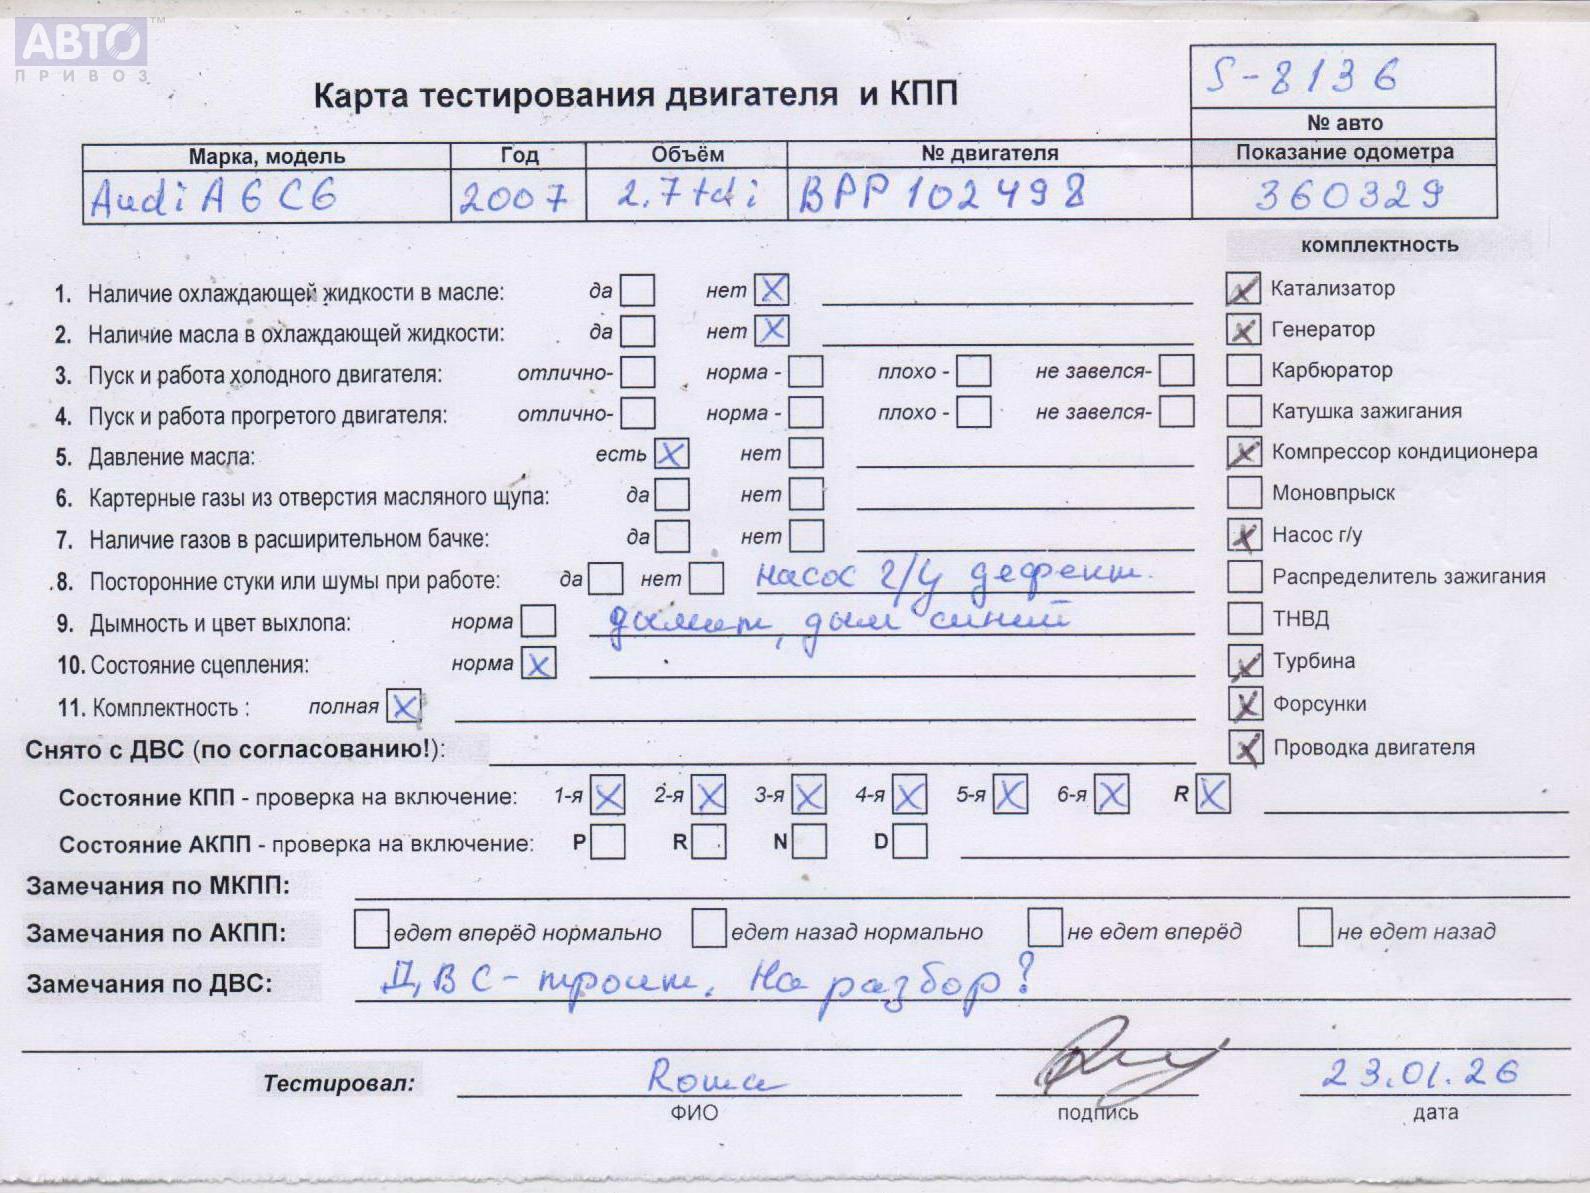 АВТО™
ПРИВОЗ
S-8136
Карта тестирования двигателя и КПП
№ авто
Марка, модель Год Объём № двигателя Показание одометра
Audi A6 C6 2007 2.7 tdi BPP 102498 360329
комплектность
1. Наличие охлаждающей жидкости в масле: да нет X Катализатор
2. Наличие масла в охлаждающей жидкости: да нет X Генератор
3. Пуск и работа холодного двигателя: отлично- норма - плохо - не завелся- Карбюратор
4. Пуск и работа прогретого двигателя: отлично- норма - плохо - не завелся- Катушка зажигания
5. Давление масла: есть X нет Компрессор кондиционера
6. Картерные газы из отверстия масляного щупа: да нет Моновпрыск
7. Наличие газов в расширительном бачке: да нет Насос г/у
8. Посторонние стуки или шумы при работе: да нет насос г/у дефект. Распределитель зажигания
9. Дымность и цвет выхлопа: норма дымит, дым синий ТНВД
10. Состояние сцепления: норма X Турбина
11. Комплектность : полная X Форсунки
Снято с ДВС (по согласованию!): Проводка двигателя
Состояние КПП - проверка на включение: 1-я X 2-я X 3-я X 4-я X 5-я X 6-я X R X
Состояние АКПП - проверка на включение: P R N D
Замечания по МКПП:
Замечания по АКПП: едет вперёд нормально едет назад нормально не едет вперёд не едет назад
Замечания по ДВС: ДВС - троит. На разбор?
Тестировал: Roma 23.01.26
ФИО подпись дата